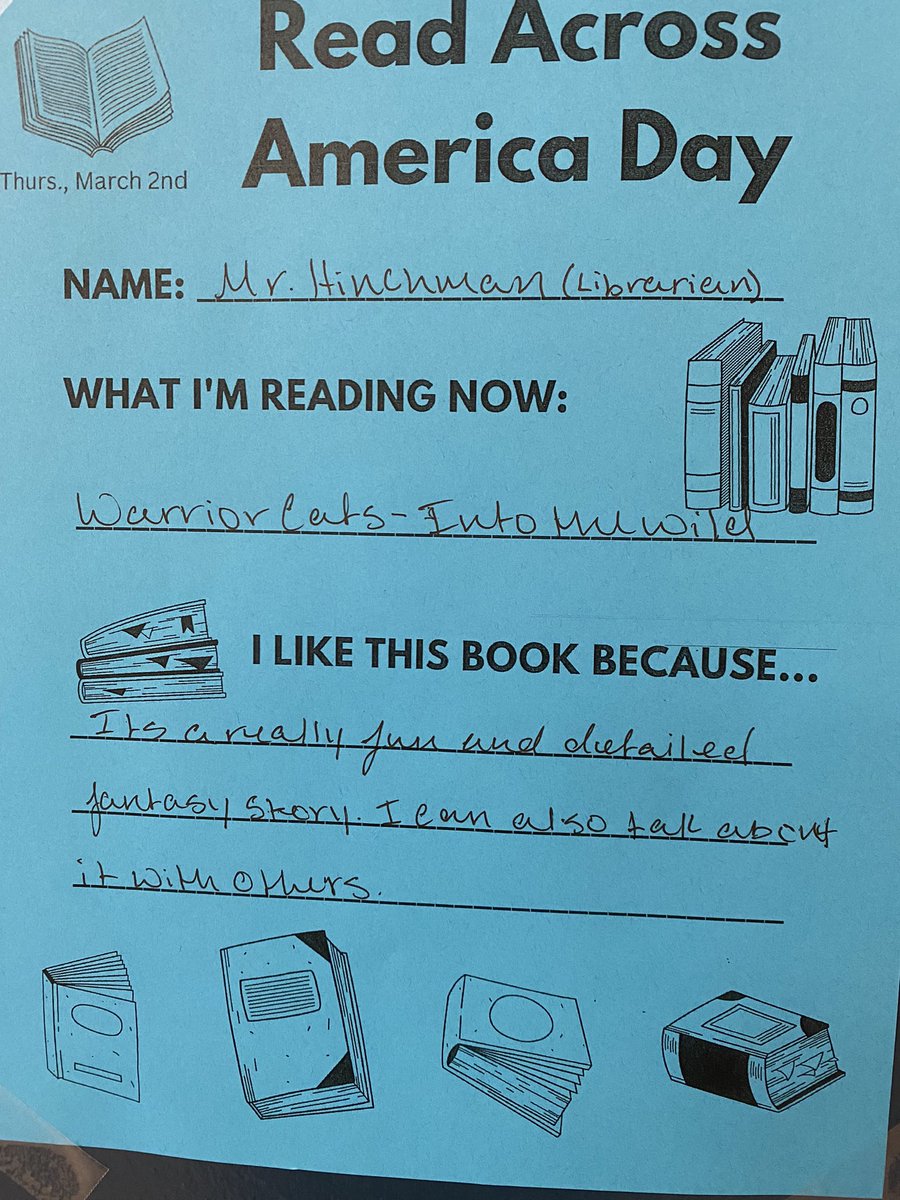 Read Across
America Day
Thurs., March 2nd
NAME: Mr. Hinchman (Librarian)
WHAT I'M READING NOW:
Warrior Cats - Into the Wild
I LIKE THIS BOOK BECAUSE...
Its a really fun and detailed
fantasy story. I can also talk about
it with others.